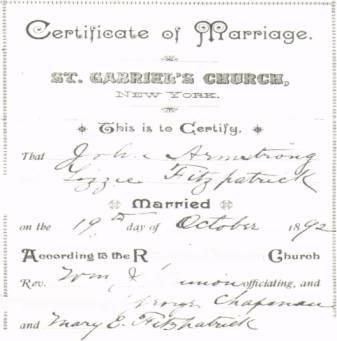 Certificate of Marriage.
ST. GABRIEL'S CHURCH,
NEW YORK.
This is to Certify,
That John Armstrong
Lizzie Fitzpatrick
Married
on the 19th day of October 1892
According to the R Church
Rev. Wm J officiating, and
George Chapman
and Mary E. Fitzpatrick